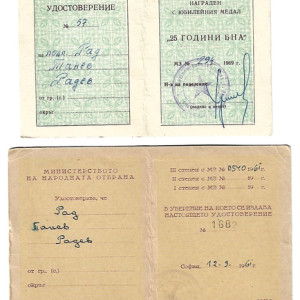 УДОСТОВЕРЕНИЕ
№ 57
на
Рад
Танев
Радев
от гр. (с.)
окръг
НАГРАДЕН
С ЮБИЛЕЙНИЯ МЕДАЛ
„25 ГОДИНИ БНА“
МЗ № 294 1969 г.
МИНИСТЕРСТВОТО
НА НАРОДНАТА ОТБРАНА
Удостоверява, че
Рад
Танев
Радев
от гр. (с)
окръг
III степен с МЗ № 0540
II степен с МЗ № 19 г.
I степен с МЗ № 19 г.
В УВЕРЕНИЕ НА КОЕТО СЕ ИЗДАВА
НАСТОЯЩЕТО УДОСТОВЕРЕНИЕ
№ 168
София 12-9.